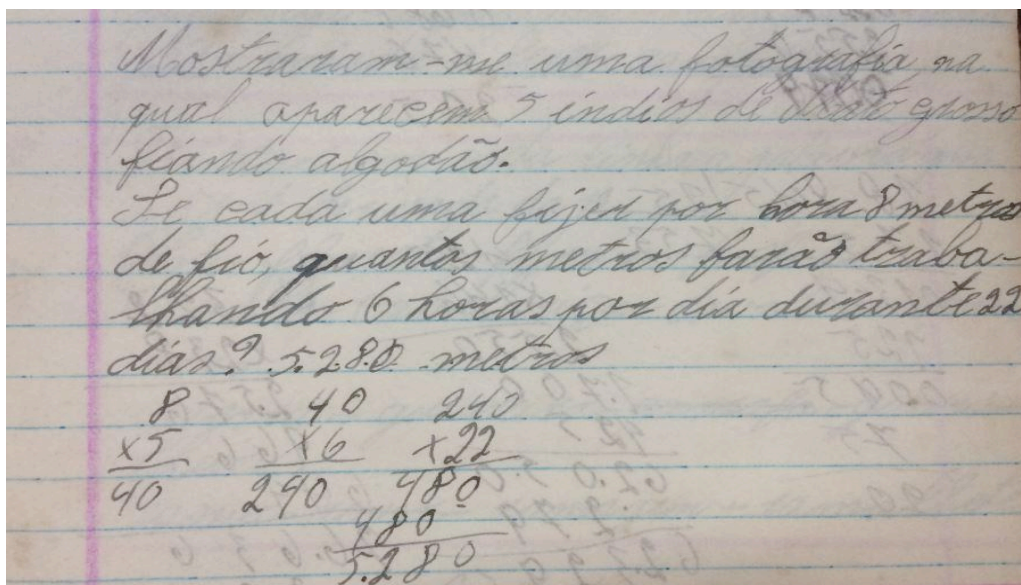 Mostraram-me uma fotografia na
qual aparecem 5 indios de Mato grosso
fiando algodão.
Se cada uma fizer por hora 8 metros
de fio, quantos metros farão traba-
lhando 6 horas por dia durante 22
dias? 5.280 metros
8 40 240
x5 x6 x22
40 240 480
480
5.280